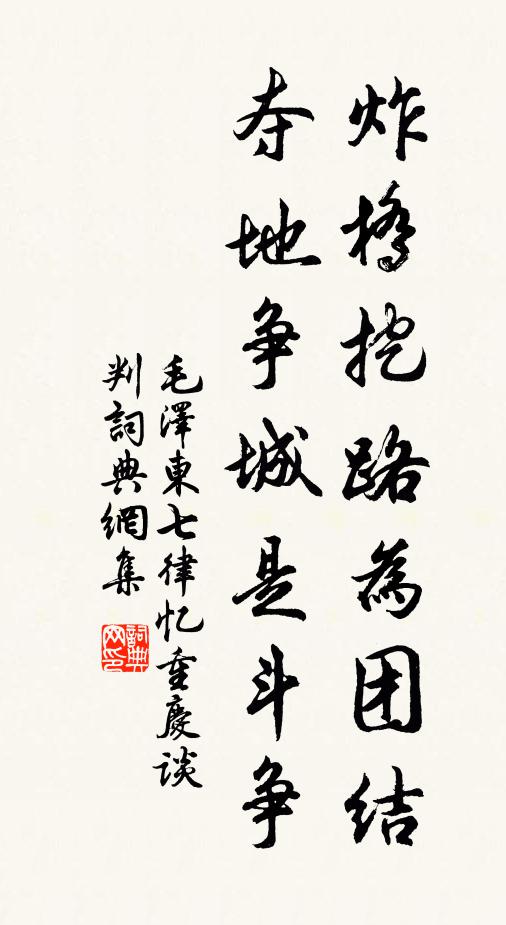 炸橋挖路為团结
夺地争城是斗争
毛澤東七律忆重慶谈
判詞典網集
詞典
网印